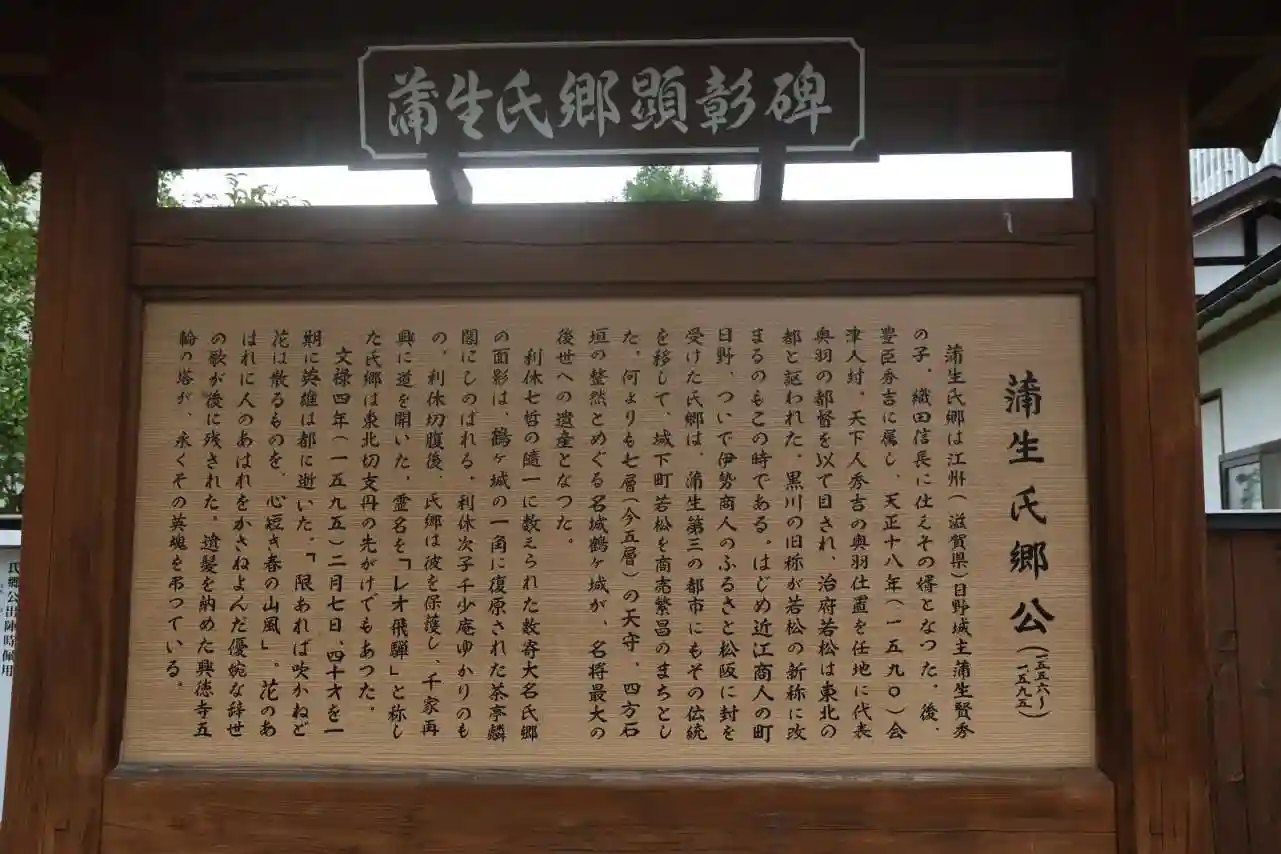 蒲生氏郷顕彰碑
蒲生氏郷公(一五五六〜一五九五)
蒲生氏郷は江州(滋賀県)日野城主蒲生賢秀
の子，織田信長に仕えその婿となった．後，
豊臣秀吉に属し，天正十八年(一五九〇)会
津入封，天下人秀吉の奥羽仕置を任地に代表
奥羽の都督を以て目され，治府若松は東北の
都と謳われた．黒川の旧称が若松の新称に改
まるのもこの時である．はじめ近江商人の町
日野，ついで伊勢商人のふるさと松阪に封を
受けた氏郷は，蒲生第三の都市にもその伝統
を移して，城下町若松を商売繁昌のまちとし
た，何よりも七層(今五層)の天守，四方石
垣の整然とめぐる名城鶴ヶ城が，名将最大の
後世への遺産となつた．
利休七哲の随一に数えられた数寄大名氏郷
の面影は，鶴ヶ城の一角に復原された茶亭麟
閣にしのばれる．利休次子千少庵ゆかりのも
の，利休切腹後，氏郷は彼を保護し，千家再
興に道を開いた．霊名を「レオ飛騨」と称し
た氏郷は東北切支丹の先がけでもあつた．
文禄四年(一五九五)二月七日，四十才を一
期に英雄は都に逝いた。「限あれば吹かねど
花は散るものを，心短き春の山風」。花のあ
はれに人のあはれをかさねよんだ優婉な辞世
の歌が後に残された．遺髪を納めた興徳寺五
輪の塔が，永くその英魂を弔つている．
氏郷公出陣時佩用